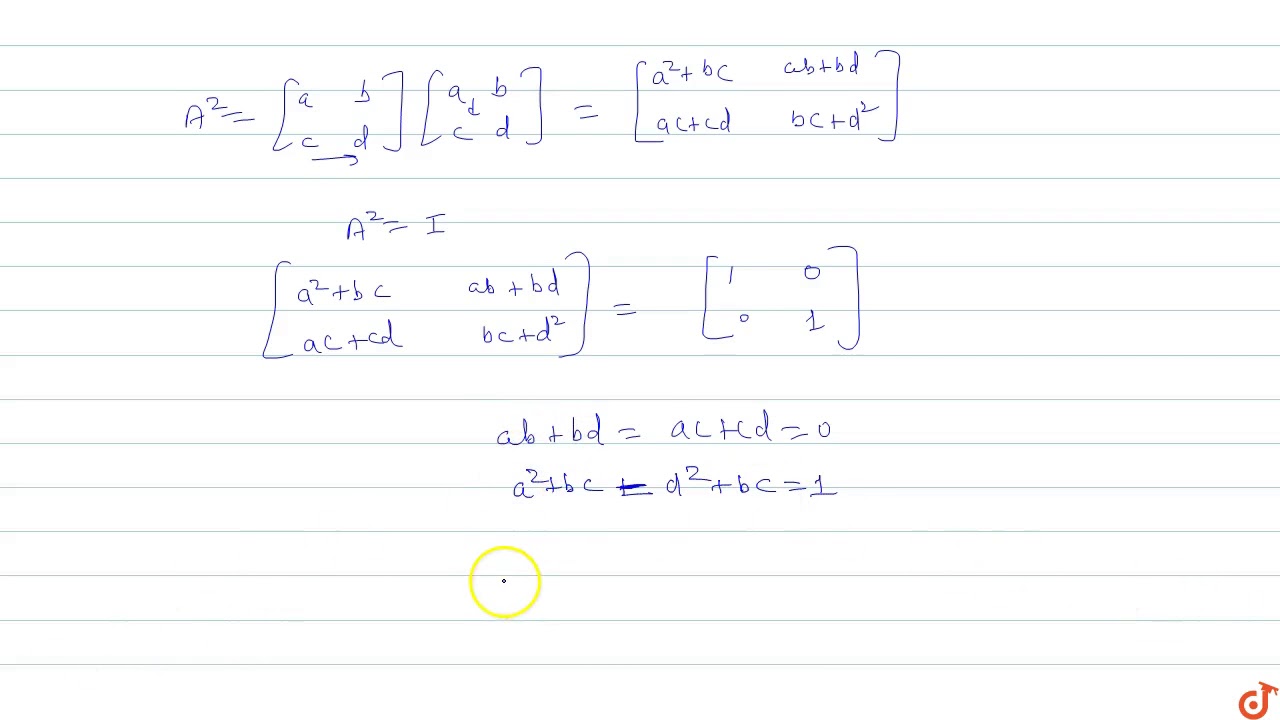 A² = [a b c d] [a b c d] = [a²+bc ab+bd ac+cd bc+d²]
A² = I
[a²+bc ab+bd ac+cd bc+d²] = [1 0 0 1]
ab+bd = ac+cd=0
a²+bc = d²+bc=1